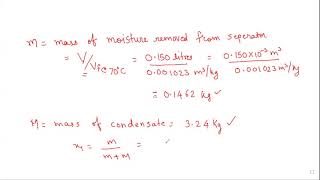 m = mass of moisture removed from seperator
= V/Vf@70°C = 0.150 litres / 0.001023 m³/kg = 0.150×10⁻³ m³ / 0.001023 m³/kg
= 0.1462 kg
M = mass of condensate = 3.24 kg ✓
x₁ = m / m+M =